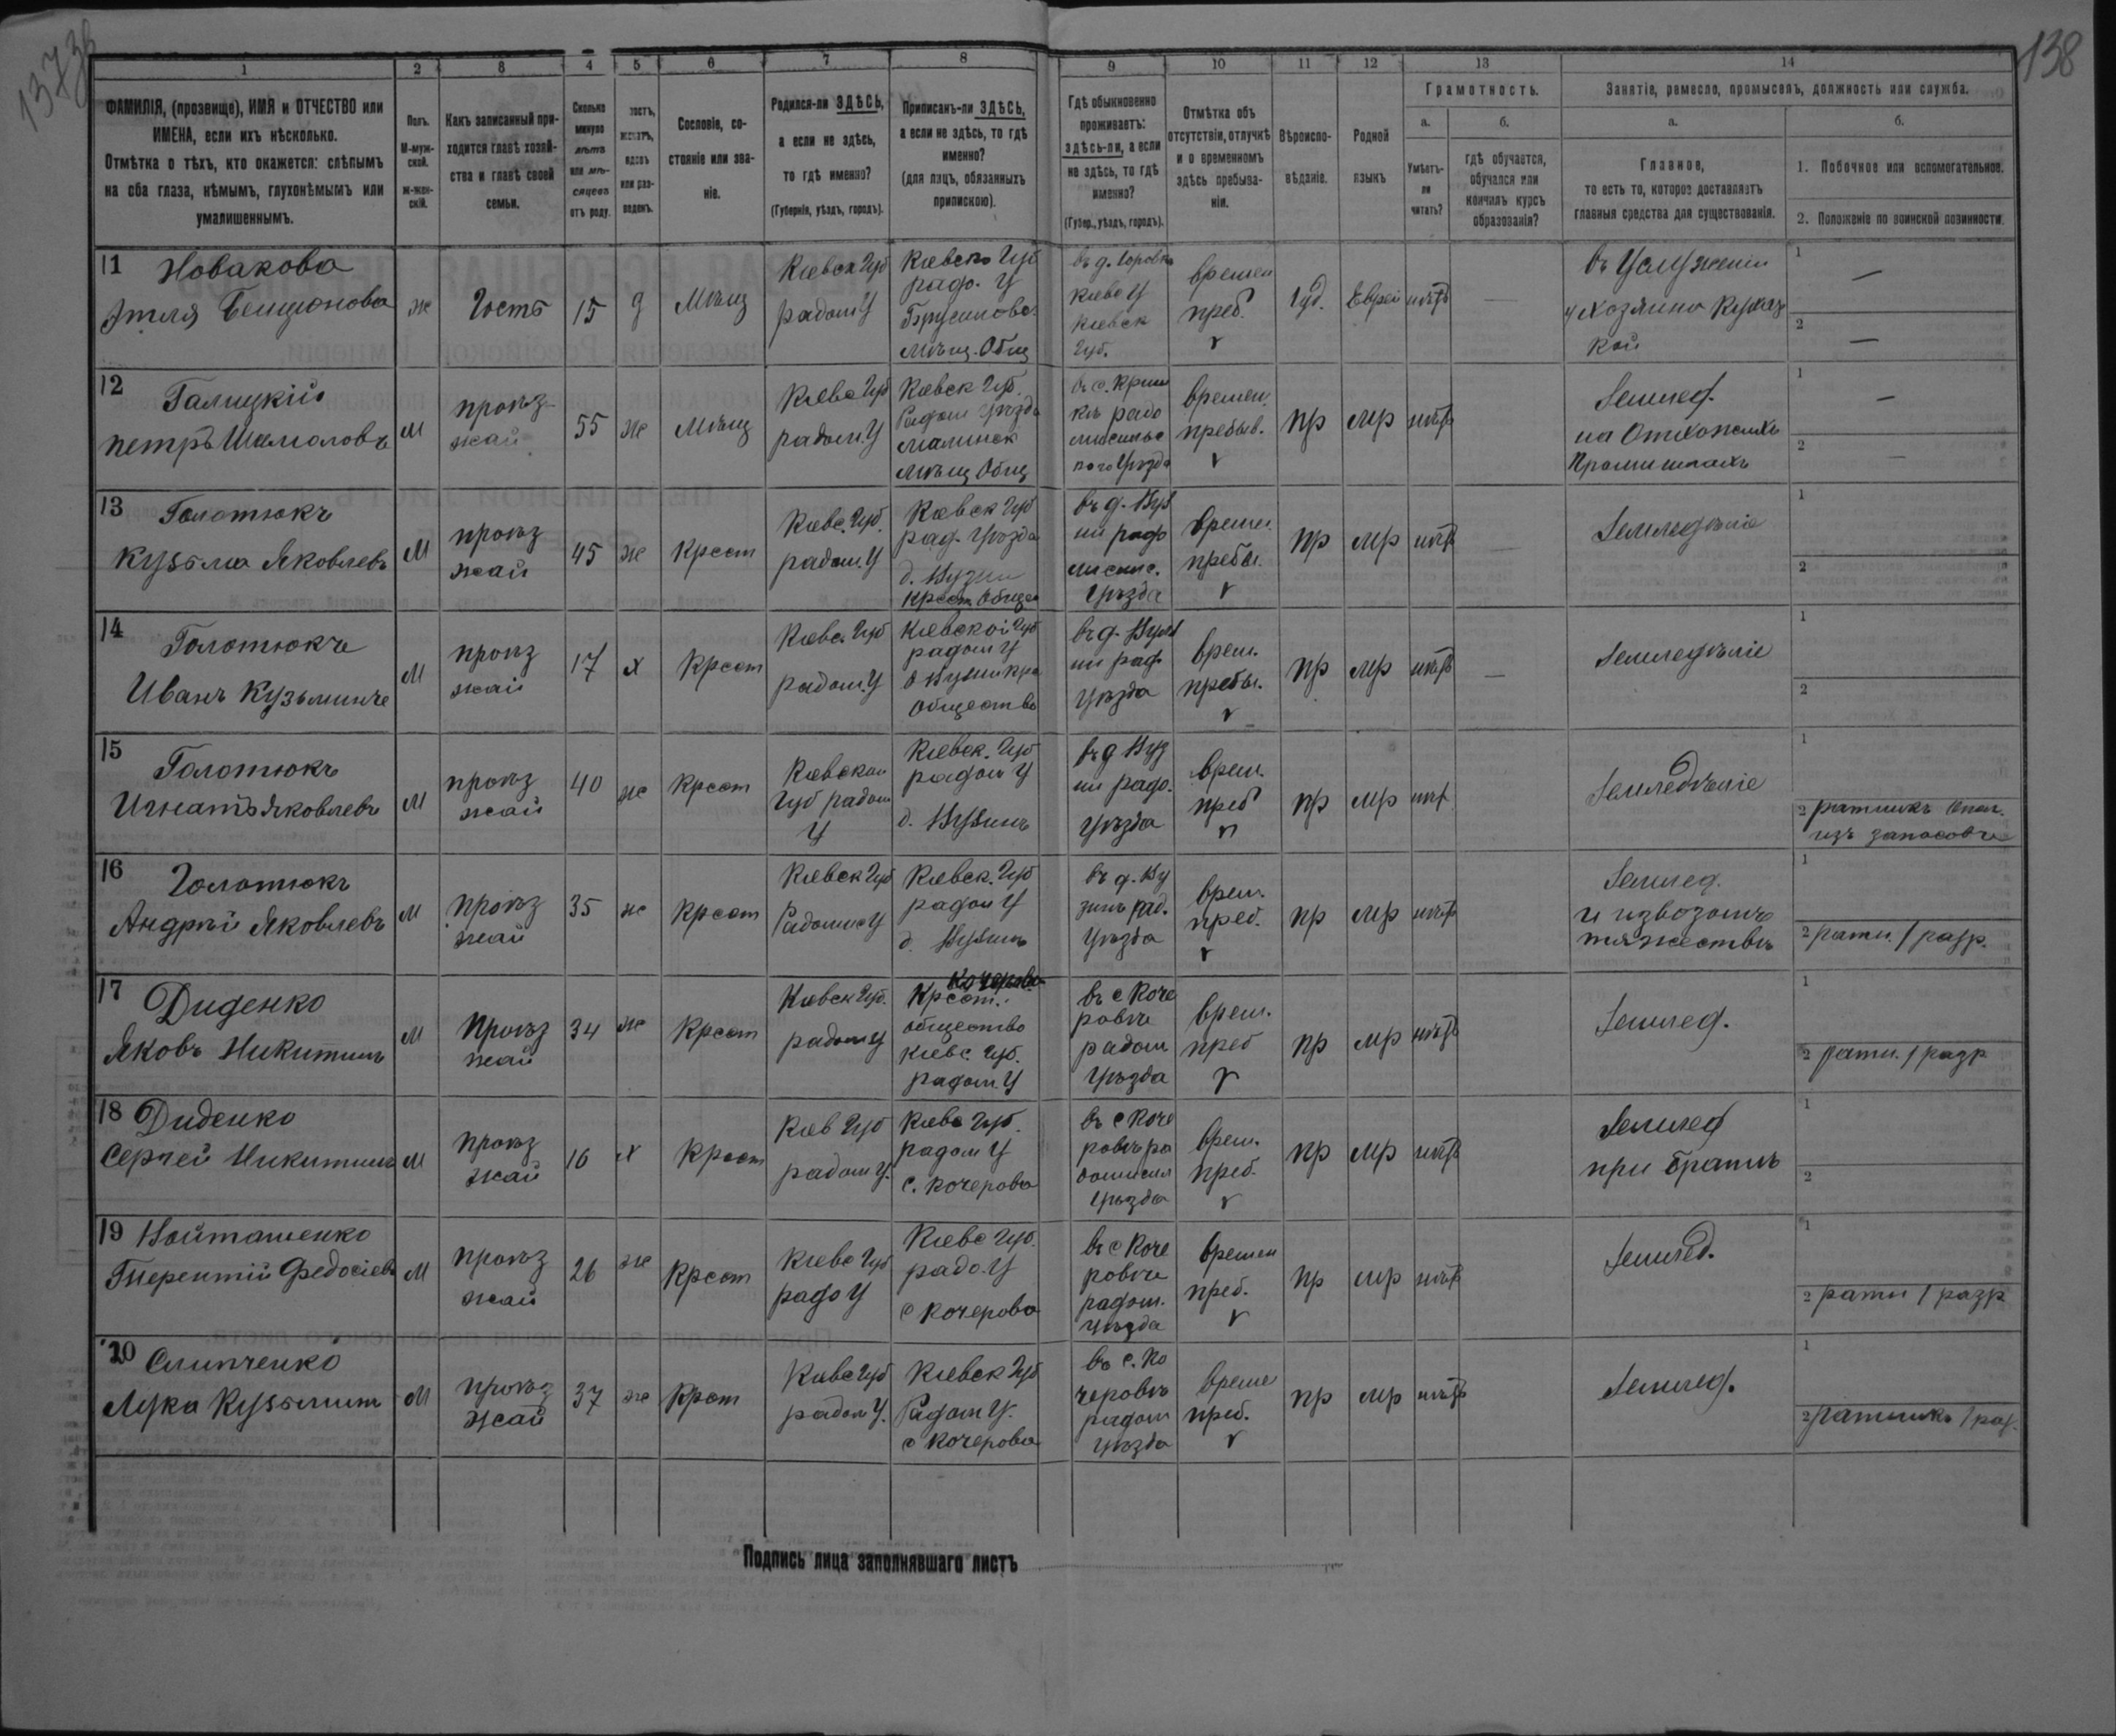 137зв
138
1
2
3
4
5
6
7
8
9
10
11
12
13
14
ФАМИЛІЯ, (прозвище), ИМЯ и ОТЧЕСТВО или
ИМЕНА, если ихъ нѣсколько.
Отмѣтка о тѣхъ, кто окажется: слѣпымъ
на оба глаза, нѣмымъ, глухонѣмымъ или
умалишеннымъ.
Полъ.
М-муж-
ской.
ж-жен-
скій.
Какъ записанный при-
ходится главѣ хозяй-
ства и главѣ своей
семьи.
Сколько
минуло
лѣтъ
или мѣ-
сяцевъ
отъ роду.
лостъ,
женатъ,
вдовъ
или раз-
веденъ.
Сословіе, со-
стояніе или зва-
ніе.
Родился-ли ЗДѢСЬ,
а если не здѣсь,
то гдѣ именно?
(Губернія, уѣздъ, городъ).
Приписанъ-ли ЗДѢСЬ,
а если не здѣсь, то гдѣ
именно?
(для лицъ, обязанныхъ
припискою).
Гдѣ обыкновенно
проживаетъ:
здѣсь-ли, а если
не здѣсь, то гдѣ
именно?
(Губер., уѣздъ, городъ).
Отмѣтка объ
отсутствіи, отлучкѣ
и о временномъ
здѣсь пребыва-
ніи.
Вѣроиспо-
вѣданіе.
Родной
языкъ
Грамотность.
а.
Умѣетъ-
ли
читать?
б.
гдѣ обучается,
обучался или
кончилъ курсъ
образованія?
Занятіе, ремесло, промыселъ, должность или служба.
а.
Главное,
то есть то, которое доставляетъ
главныя средства для существованія.
б.
1. Побочное или вспомогательное.
2. Положеніе по воинской повинности.
11 Новакова
Бенционова
ж
Гость
15
д
Мѣщ
Кіевск Губ
радом У
Кіевско Губ
радо. У
Брусиловс.
мѣщ. Общ
въ д.
Кіевс У
Кіевск
Губ.
времен
преб.
Іуд.
Еврей
нѣтъ
—
въ Услуженіи
у хозяина
кой
1 —
2 —
12 Галицкій
петръ
М
проѣз-
жай
55
ж
Мѣщ
Кіевс Губ
радом. У
Кіевск Губ.
Радом Уѣзда
Малинск
мѣщ Общ
въ с.
радо
Уѣзда
времен.
пребыв.
пр
мр
нѣтъ
Землед.
на Отхожихъ
Промислахъ
1 —
2 —
13 Голотюкъ
Кузьма Яковлевъ
М
проѣз
жай
45
ж
Крест
Кіевс. Губ.
радом. У
Кіевск Губ
рад. Уѣзда
д.
Крест. Общес
въ д.
ни радо
Уѣзда
времен.
пребы.
пр
мр
нѣтъ
—
Земледѣліе
1
2
14 Голотюкъ
Иванъ Кузьминъ
М
проѣз
жай
17
х
Крест
Кіевс. Губ
радом. У
Кіевской Губ
радом У
Общество
въ д.
ни рад.
Уѣзда
врем.
пребы.
пр
мр
нѣтъ
—
Земледѣліе
1
2
15 Голотюкъ
Игнатъ Яковлевъ
М
проѣз
жай
40
ж
Крест
Кіевской
Губ радом
У
Кіевск. Губ
радом У
д.
въ д
ни радо.
Уѣзда
врем.
преб
пр
мр
нѣт
Земледѣліе
1
2 ратникъ опол.
изъ запасовъ
16 Голотюкъ
Андрѣй Яковлевъ
М
проѣз
жай
35
ж
Крест
Кіевск Губ
Радомис У
Кіевск. Губ
радом У
д.
въ д.
рад.
Уѣзда
врем.
преб.
пр
мр
нѣтъ
Землед.
и извозомъ
1
2 ратн. 1 разр.
17 Диденко
Яковъ Никитинъ
М
Проѣз
жай
34
ж
Крест
Кіевск Губ.
радом У
Кочерово
Крест.
общество
Кіевс. Губ.
радом. У
въ с Коче
ровѣ
радом
Уѣзда
врем.
преб
пр
мр
нѣтъ
Землед.
1
2 ратн. 1 разр
18 Диденко
Сергей Никитинъ
М
проѣз
жай
16
х
Крест
Кіев Губ
радом У.
Кіевс Губ.
радом У
с. Кочерово
въ с Коче
ровѣ ра
домисл
Уѣзда
врем.
преб.
пр
мр
нѣтъ
Землед
при Братѣ
1
2
19 Войташенко
Терентій Федосіевъ
М
проѣз
жай
26
ж
Крест
Кіевс Губ
радо У
Кіевс Губ.
радо. У
с Кочерово
въ с Коче
ровѣ
радом.
Уѣзда
времен
преб.
пр
мр
нѣтъ
Землед.
1
2 ратн 1 разр
20 Слипченко
Лука Кузьминъ
М
проѣз
жай
37
ж
Крест
Кіевс Губ
радом У.
Кіевск Губ
Радом У.
с Кочерово
въ с. Ко
черовѣ
радом
Уѣзда
време
преб.
пр
мр
нѣтъ
Землед.
1
2 ратникъ 1 раз.
Подпись лица заполнявшаго листъ